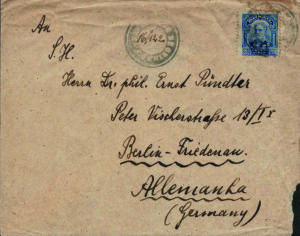 An
S.H.
Herrn Dr. phil. Ernst Pündter
Peter Vischerstraße 13/I
Berlin-Friedenau.
Allemanha
(Germany)